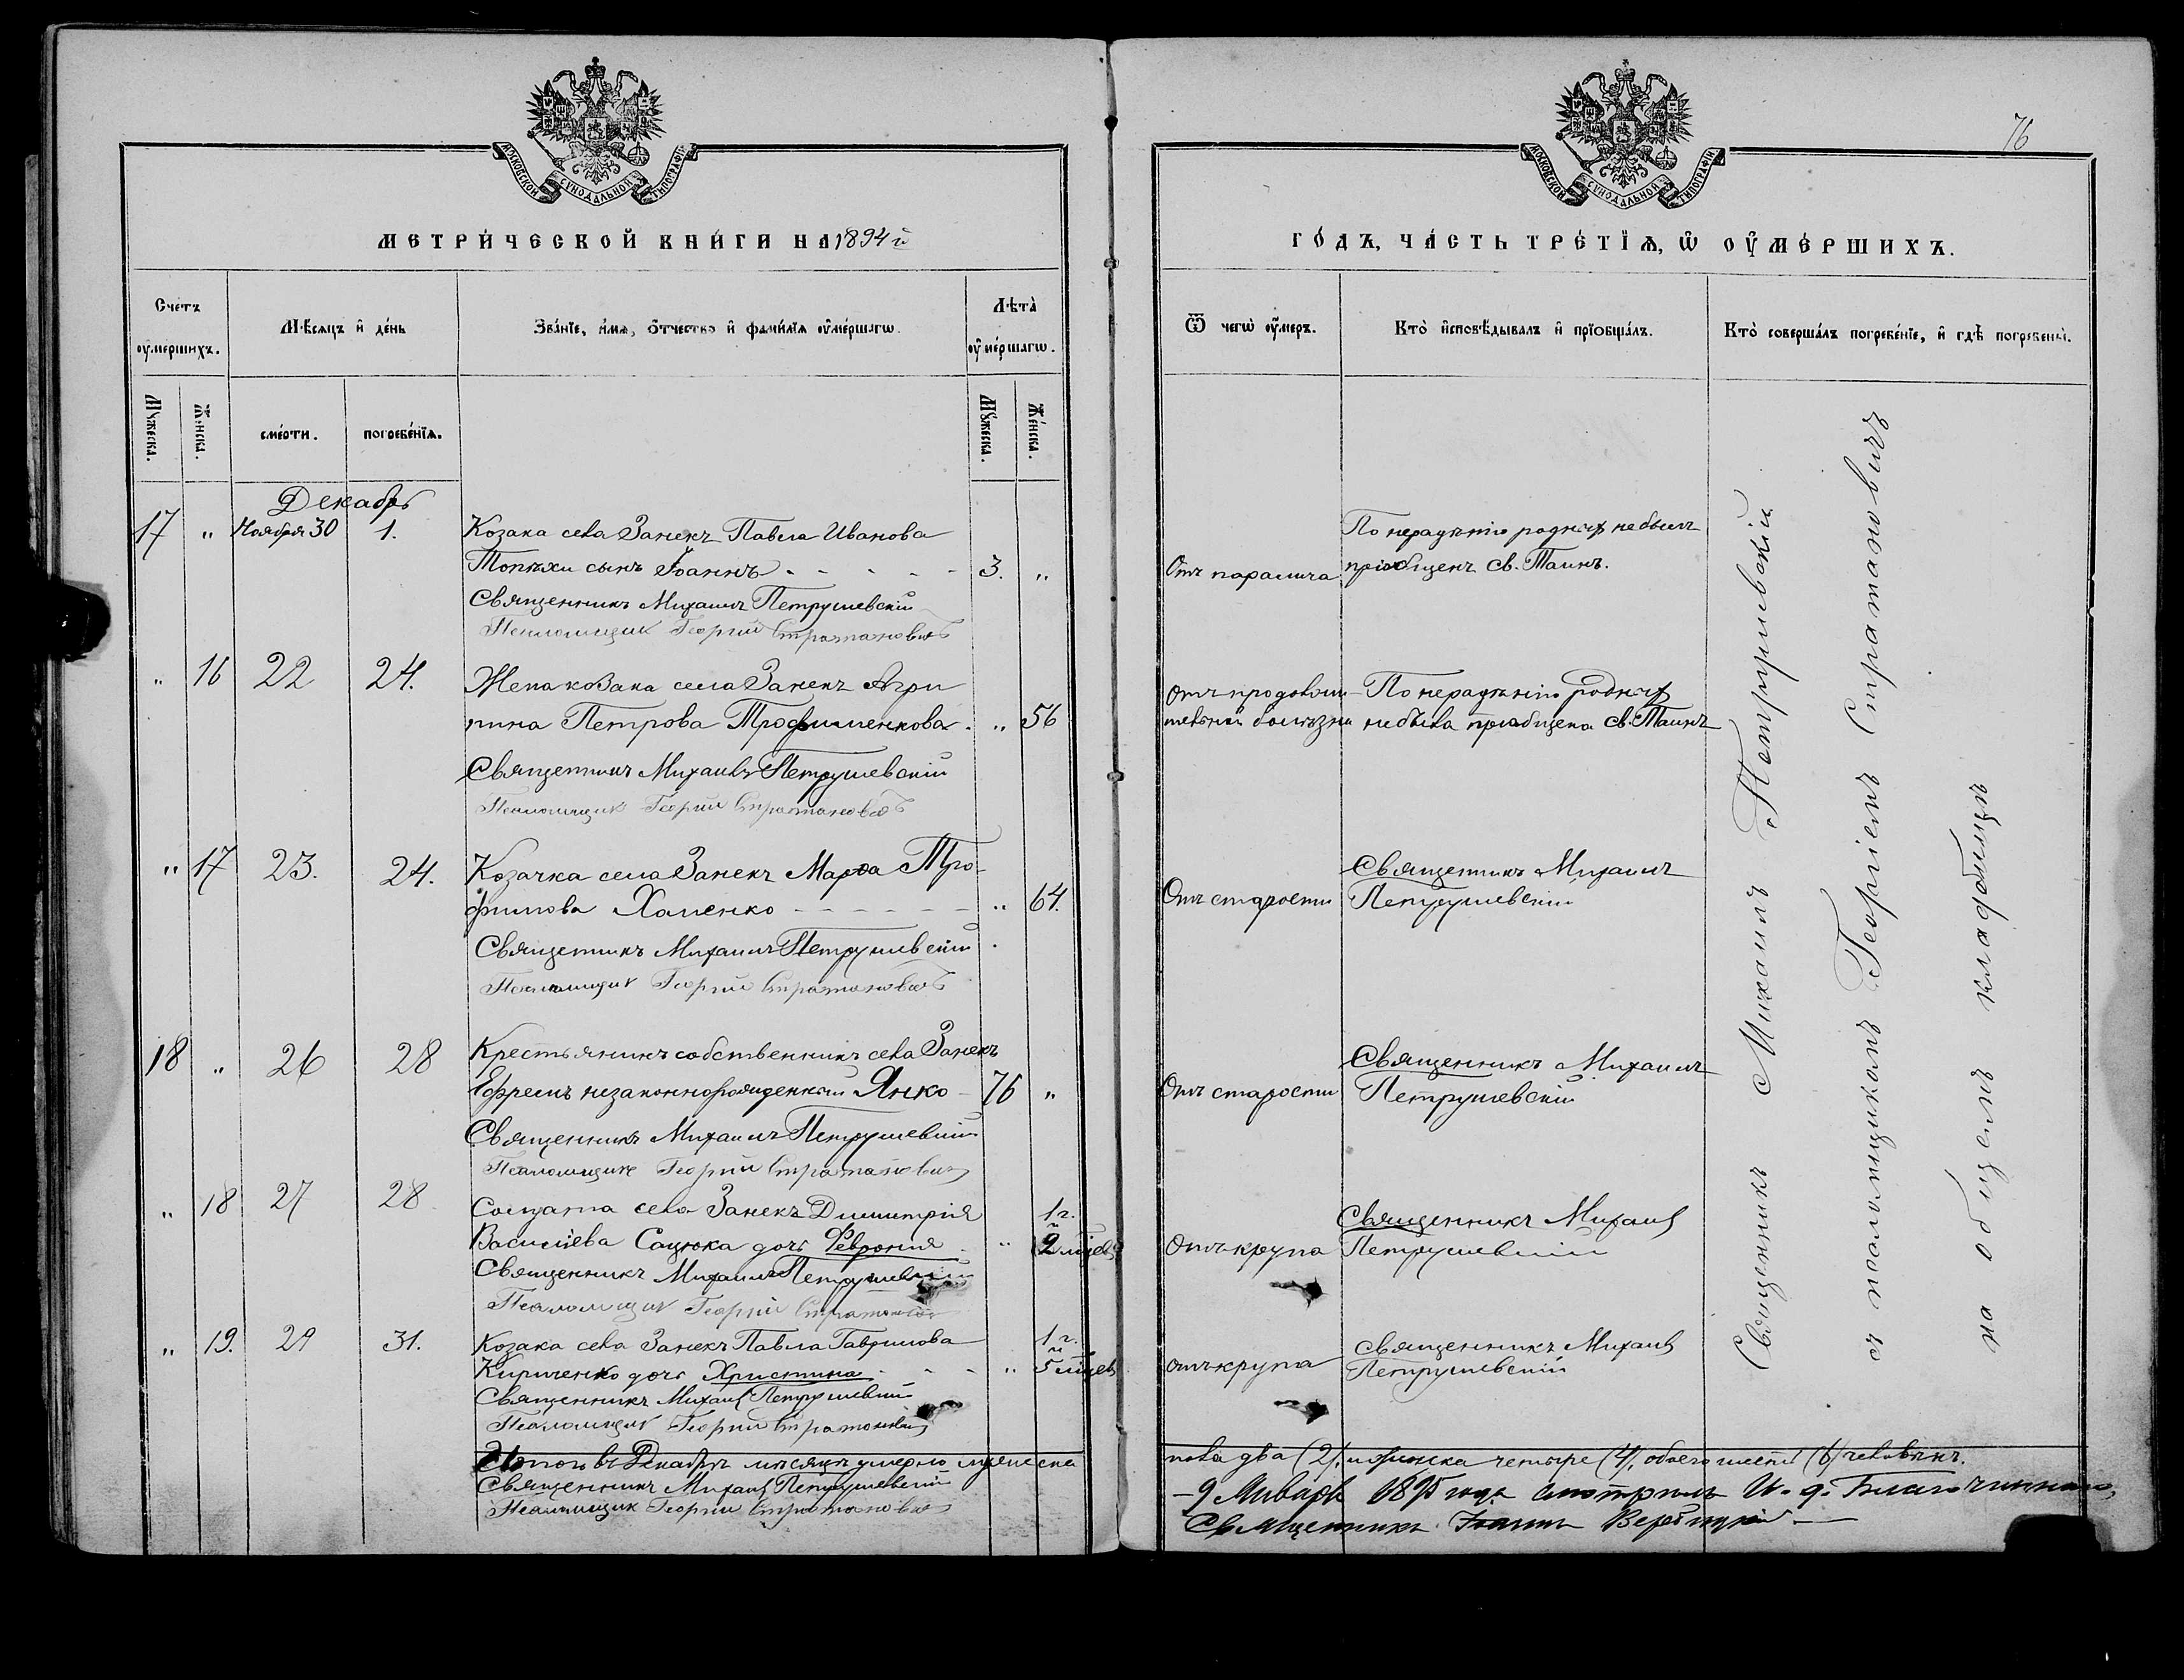 МОСКОВСКОЙ СѴНОДАЛЬНОЙ ТИПОГРАФІИ
МЕТРИЧЕСКОЙ КНИГИ НА 1894й
Счетъ оумершихъ.
Мѣсяцъ и день
Званіе, имя, отчество и фамилія оумершагѡ.
Лѣта оумершагѡ.
Мужеска.
Женска.
смерти.
погребенія.
Мужеска.
Женска.
Декабрь
17 " Ноября 30 1. Козака села Занекъ Павла Иванова
Топѣхи сынъ Іоаннъ - - - - - 3. "
Священникъ Михаилъ Петрушевскій
Псаломщик Георгій Стратановичъ
" 16 22 24. Жена козака села Занекъ Агри
пина Петрова Трофименкова. " 56
Священникъ Михаилъ Петрушевскій
Псаломщик Георгій Стратановичъ
" 17 23. 24. Козачка села Занекъ Марфа Тро-
фимова Хоменко - - - - - - " 64.
Священникъ Михаилъ Петрушевскій
Псаломщик Георгій Стратановичъ
18 " 26 28 Крестьянинъ собственникъ села Занекъ
Ефремъ незаконнорожденный Янко - 76 "
Священникъ Михаилъ Петрушевскій
Псаломщик Георгій Стратановичъ
" 18 27 28 Солдата села Занекъ Димитрія 1 г.
Василіева Сацюка дочь Февронія - " и 2 мѣсяц
Священникъ Михаилъ Петрушевскій
Псаломщик Георгій Стратановичъ
" 19. 29 31. Козака села Занекъ Павла Гаврилова 1 г.
Кириченко дочь Христина - - - " и 5 мѣсяц
Священникъ Михаилъ Петрушевскій
Псаломщик Георгій Стратановичъ
Итого въ Декабрѣ мѣсяцѣ умерло мужеска
Священникъ Михаилъ Петрушевскій
Псаломщик Георгій Стратановичъ
76
МОСКОВСКОЙ СѴНОДАЛЬНОЙ ТИПОГРАФІИ
ГОДЪ, ЧАСТЬ ТРЕТІЯ, Ѡ ОУМЕРШИХЪ.
Ѿ чегѡ оумеръ.
Кто исповѣдывалъ и пріобщалъ.
Кто совершалъ погребеніе, и гдѣ погребены.
По нерадѣнію родных не былъ
Отъ паралича пріобщенъ св. Таинъ.
Отъ продолжи- По нерадѣнію родных
тельной болѣзни не была пріобщена св. Таинъ
Священникъ Михаилъ
Отъ старости Петрушевскій
Священникъ Михаилъ
Отъ старости Петрушевскій
Священникъ Михаил
Отъ крупа Петрушевскій
Священникъ Михаил
Отъ крупа Петрушевскій
Священникъ Михаилъ Петрушевскій
съ псаломщикомъ Георгіемъ Стратановичъ
на общемъ кладбищѣ
пола два (2), и женска четыре (4), обоего шесть (6) человѣкъ.
- 9 Января 1895 года смотрѣлъ И. д. Благочиннаго,
Священникъ Іоаннъ